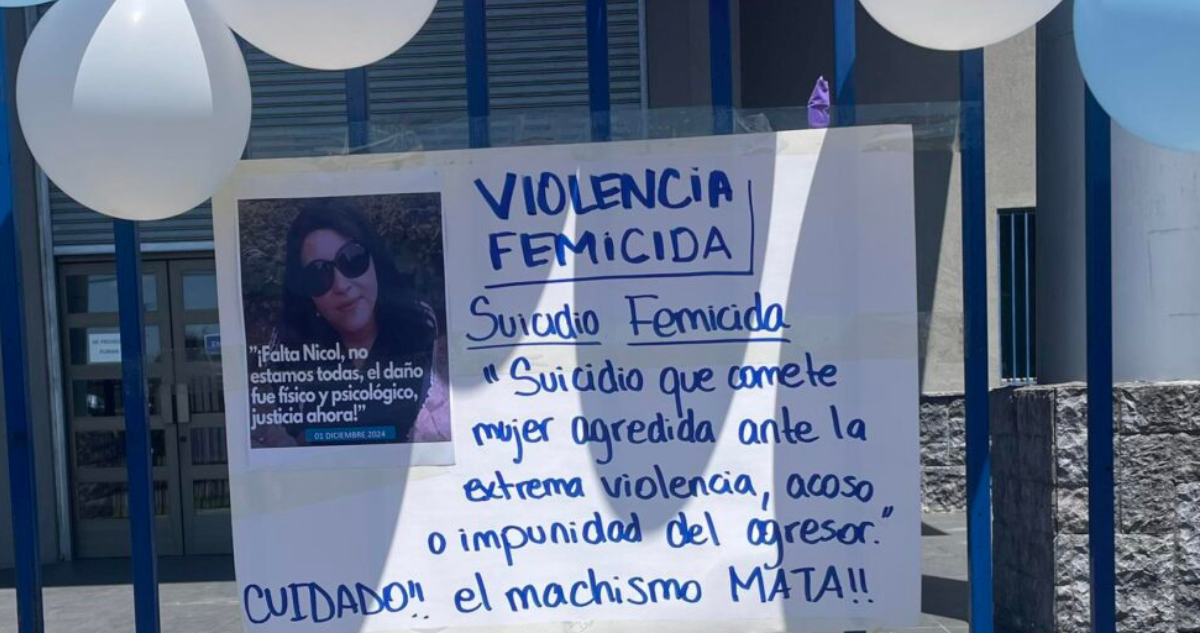 VIOLENCIA
FEMICIDA
Suicidio Femicida
"Suicidio que comete
mujer agredida ante la
extrema violencia, acoso
o impunidad del agresor."
CUIDADO!! el machismo MATA!!
"¡Falta Nicol, no
estamos todas, el daño
fue físico y psicológico,
justicia ahora!"
01 DICIEMBRE 2024